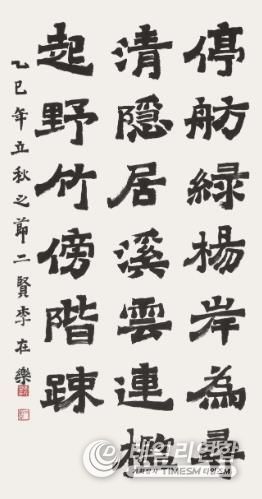 停舫緑楊岸為尋
清隱居溪雲連檻
起野竹傍階踈
乙巳年立秋之節二賢李在樂
TIMESM